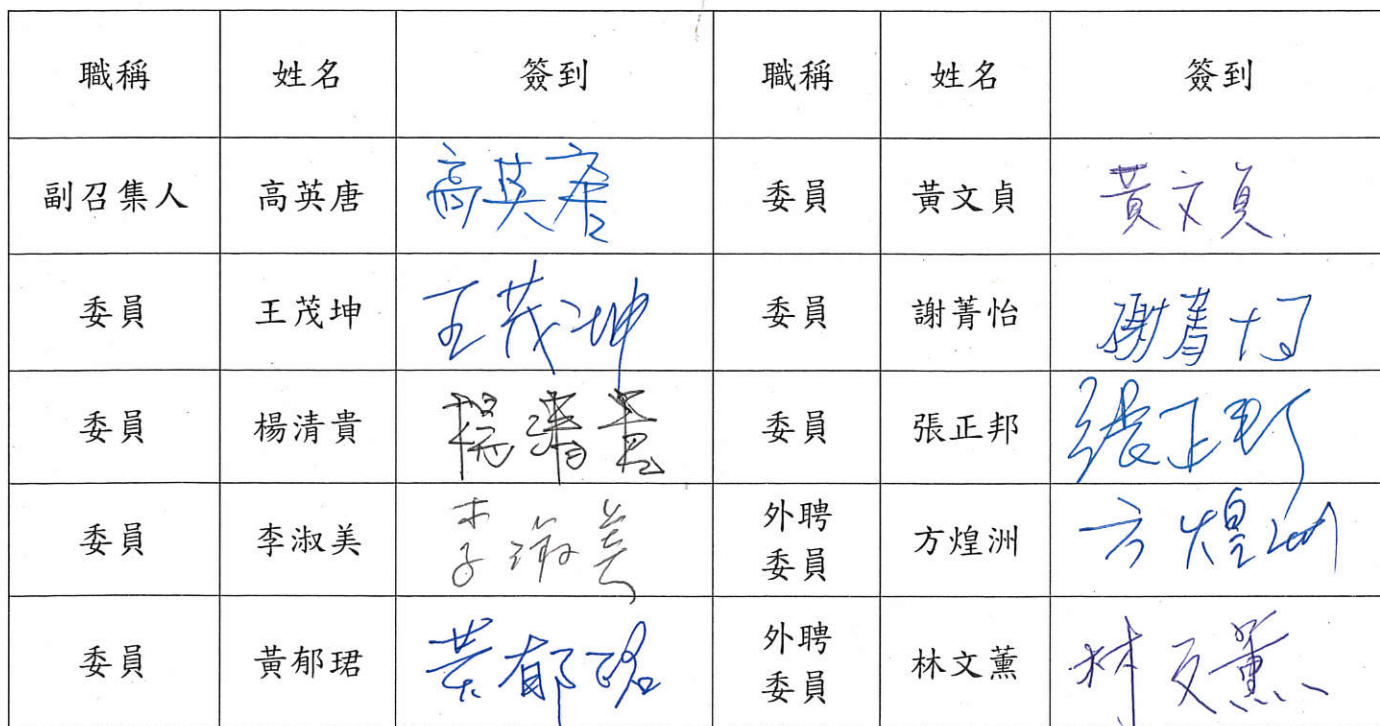 職稱 姓名 簽到 職稱 姓名 簽到
副召集人 高英唐 高英唐 委員 黃文貞 黃文貞
委員 王茂坤 王茂坤 委員 謝菁怡 謝菁怡
委員 楊清貴 楊清貴 委員 張正邦 張正邦
委員 李淑美 李淑美 外聘委員 方煌洲 方煌洲
委員 黃郁珺 黃郁珺 外聘委員 林文薰 林文薰